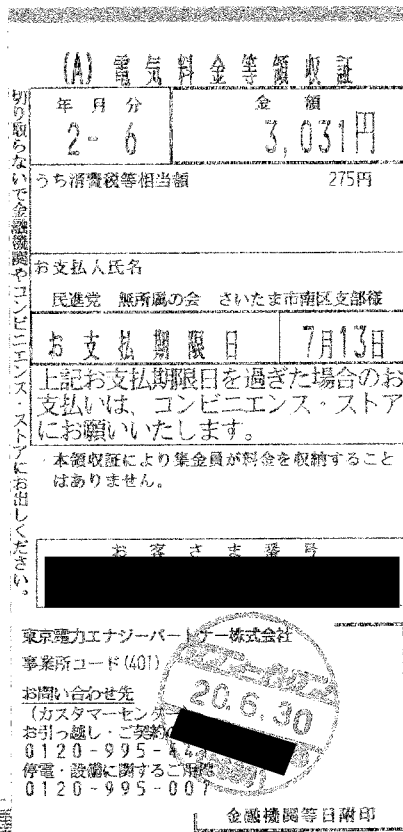 (A) 電気料金等領収証
切り取らないで金融機関やコンビニエンス・ストアにお出しください。
年月分
金額
2- 6
3,031円
うち消費税等相当額 275円
お支払人氏名
民進党 無所属の会 さいたま市南区支部様
お支払期限日 7月13日
上記お支払期限日を過ぎた場合のお
支払いは、コンビニエンス・ストア
にお願いいたします。
本領収証により集金員が料金を収納すること
はありません。
お客さま番号
東京電力エナジーパートナー株式会社
事業所コード(401)
お問い合わせ先
(カスタマーセンター
お引っ越し・ご契約
0120-995-44
停電・設備に関するご用件
0120-995-007
20.6.30
金融機関等日附印